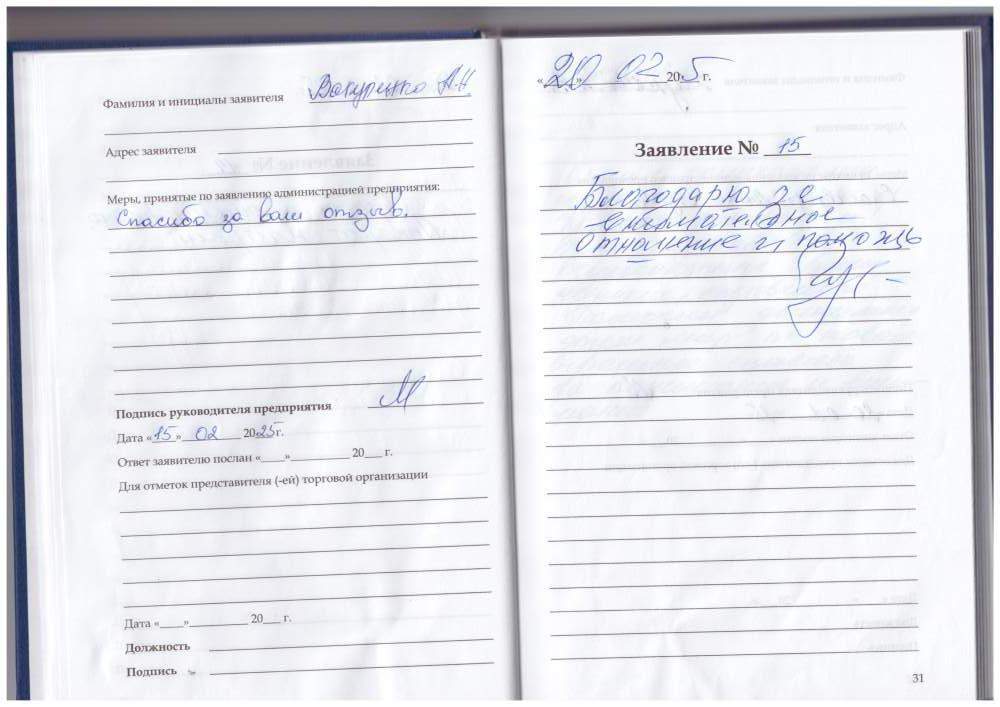 Фамилия и инициалы заявителя Вакуренко А.Н.
Адрес заявителя
Меры, принятые по заявлению администрацией предприятия:
Спасибо за ваш отзыв.
Подпись руководителя предприятия
Дата «15» 02 2025г.
Ответ заявителю послан «____»__________ 20___ г.
Для отметок представителя (-ей) торговой организации
Дата «____»__________ 20___ г.
Должность
Подпись
«20» 02 205 г.
Заявление № 15
Благодарю за
внимательное
отношение и помощь
31